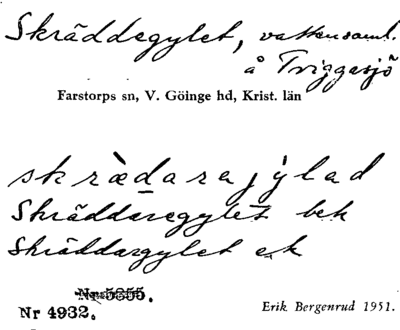 Skräddegylet, vattensaml.
å Triggasjö
Farstorps sn, V. Göinge hd, Krist. län
skrädarajylad
Skräddaregylet bek
Skräddargylet ek
Nr 5355.
Nr 4932.
Erik Bergenrud 1951.